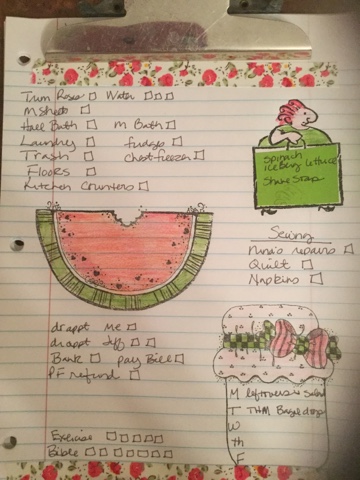 Trim Roses Water
M Sheets
Hall Bath M Bath
Laundry fridge
Trash Chest freezer
Floors
Kitchen Counters
Spinach
iceberg lettuce
Sewing
Nina's repairs
Quilt
Napkins
dr appt me
dr appt
Bank pay Bill
PF refund
M leftovers
T THM
W
Th
F
Exercise
Bible